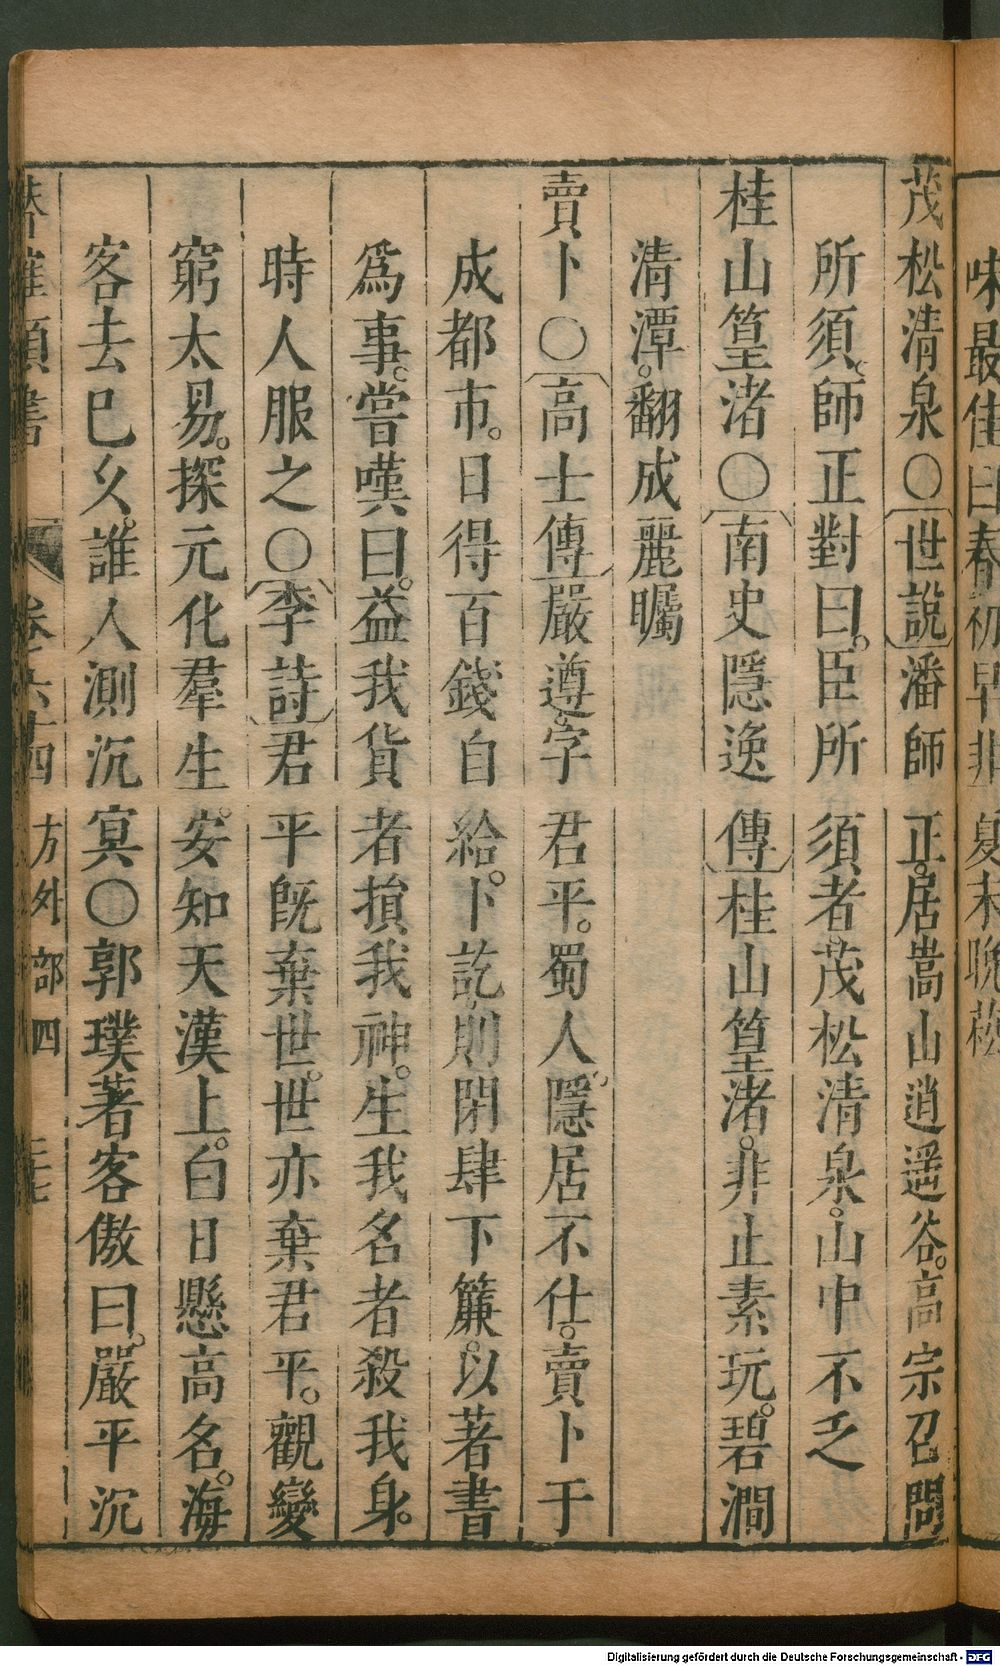 味最佳曰春初早韭夏末晚菘
茂松清泉〇世說潘師正。居嵩山逍遥谷。高宗召問
所須。師正對曰。臣所須者。茂松清泉。山中不乏
桂山篁渚〇南史隱逸傳桂山篁渚。非止素玩。碧澗
清潭。翻成麗矚
賣卜〇高士傳嚴遵。字君平。蜀人。隱居不仕。賣卜于
成都市。日得百錢自給。卜訖則閉肆下簾。以著書
爲事。嘗嘆曰。益我貨者損我神。生我名者殺我身。
時人服之〇李詩君平既棄世。世亦棄君平。觀變
窮太易。探元化羣生。安知天漢上。白日懸高名。海
客去巳久。誰人測沉冥〇郭璞著客傲曰。嚴平沉
類書 卷六十四 方外部四
Digitalisierung gefördert durch die Deutsche Forschungsgemeinschaft - DFG